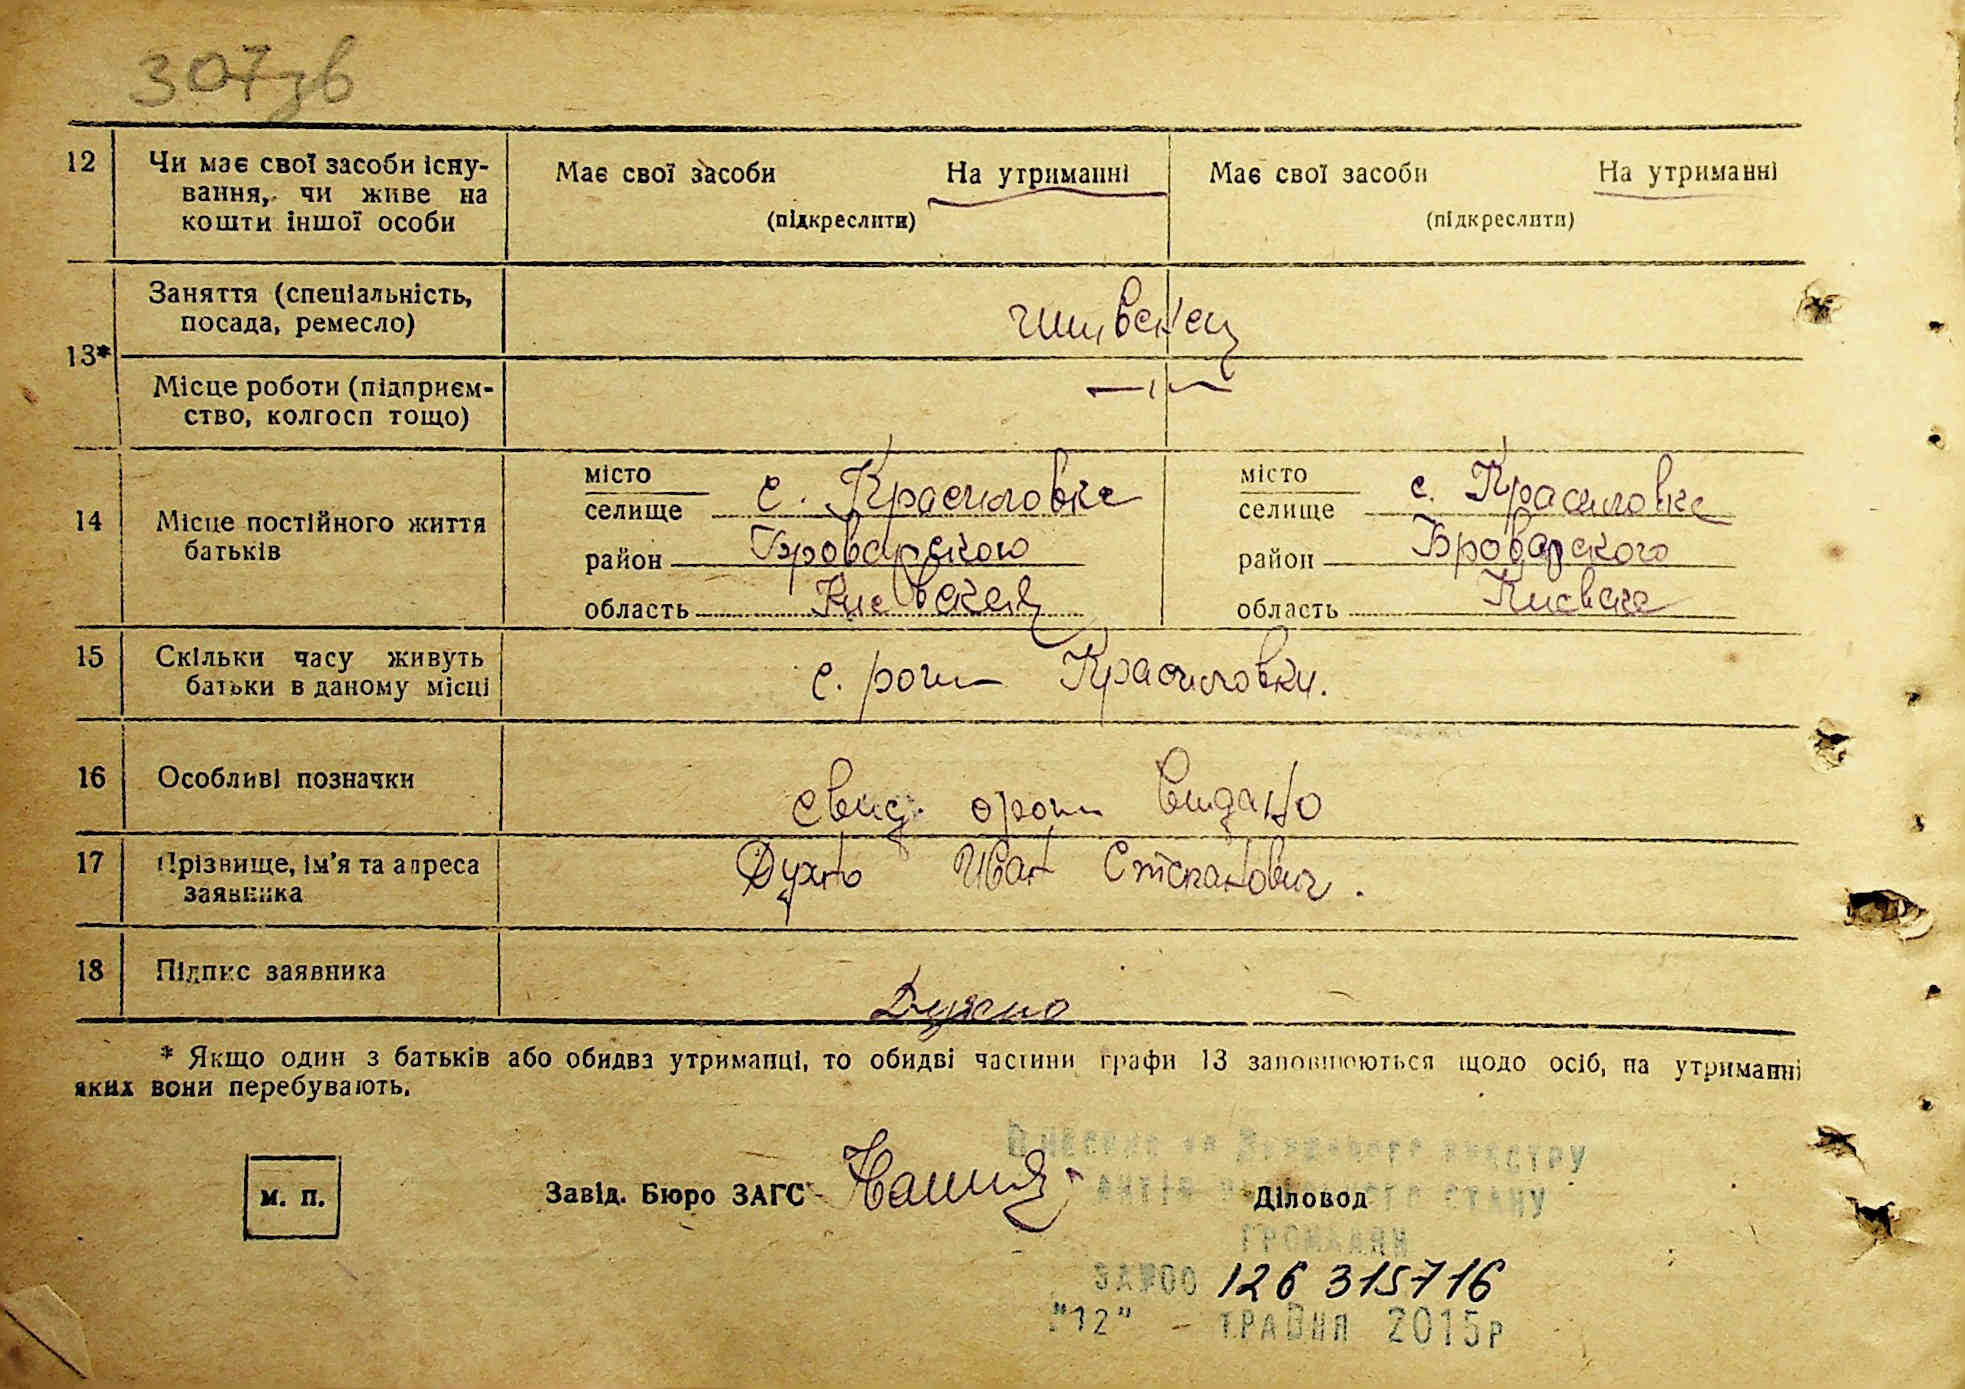 307зв
12 Чи має свої засоби існу- Має свої засоби На утриманні Має свої засоби На утриманні
вання, чи живе на (підкреслити) (підкреслити)
кошти іншої особи
Заняття (спеціальність,
посада, ремесло)
13*
Місце роботи (підприєм- — ı —
ство, колгосп тощо)
14 Місце постійного життя батьків
місто
селище с. Красиловка
район Броварского
область Киевской
місто
селище с. Красиловка
район Броварского
область
15 Скільки часу живуть
батьки в даному місці с. Красиловки.
16 Особливі позначки свид. видано
17 Прізвище, ім'я та адреса Духно Иван Степанович.
заявника
18 Підпис заявника Духно
* Якщо один з батьків або обидва утриманці, то обидві частини графи 13 заповнюються щодо осіб, на утриманні
яких вони перебувають.
м. п. Завід. Бюро ЗАГС Діловод
Внесено до Державного реєстру
актів цивільного стану
громадян
за №00 126 315716
"12" - травня 2015р